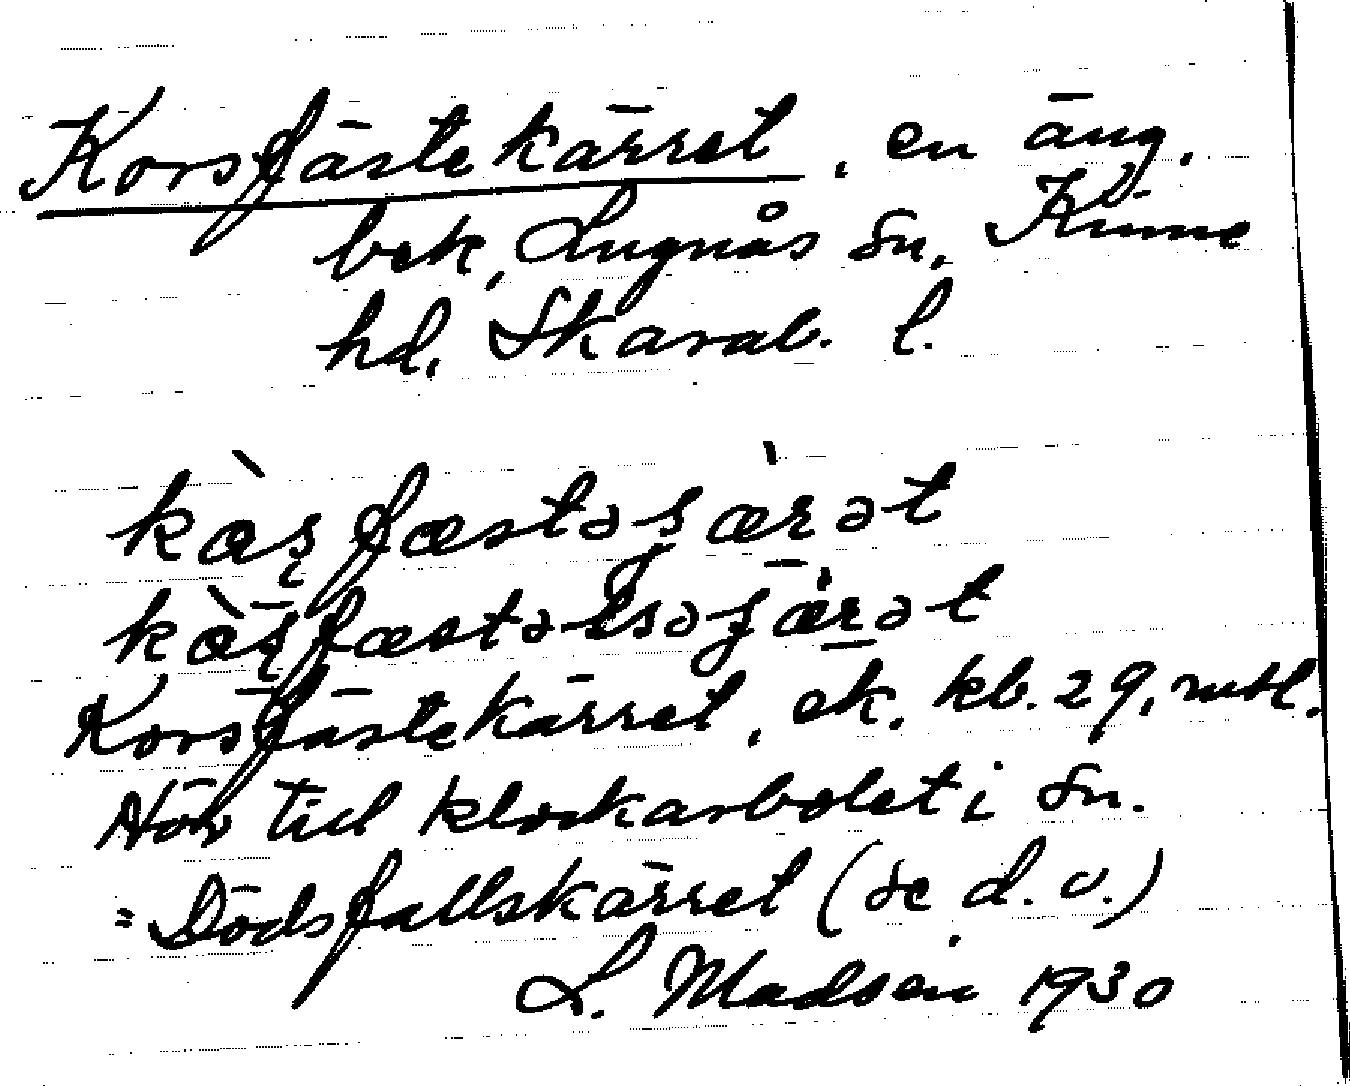 Korsfästekärret, en äng,
bek, Lugnås sn, Kinne
hd, Skarab. l.
kàʂfæstəʂæ̀rət
kòʂfæstəlsəʂæ̀rət
Korsfästekärret, ek. kb. 29, mtl.
Hör till klockarbolet i sn.
= Dödsfallskärret (se d.o.)
L. Madsén 1930